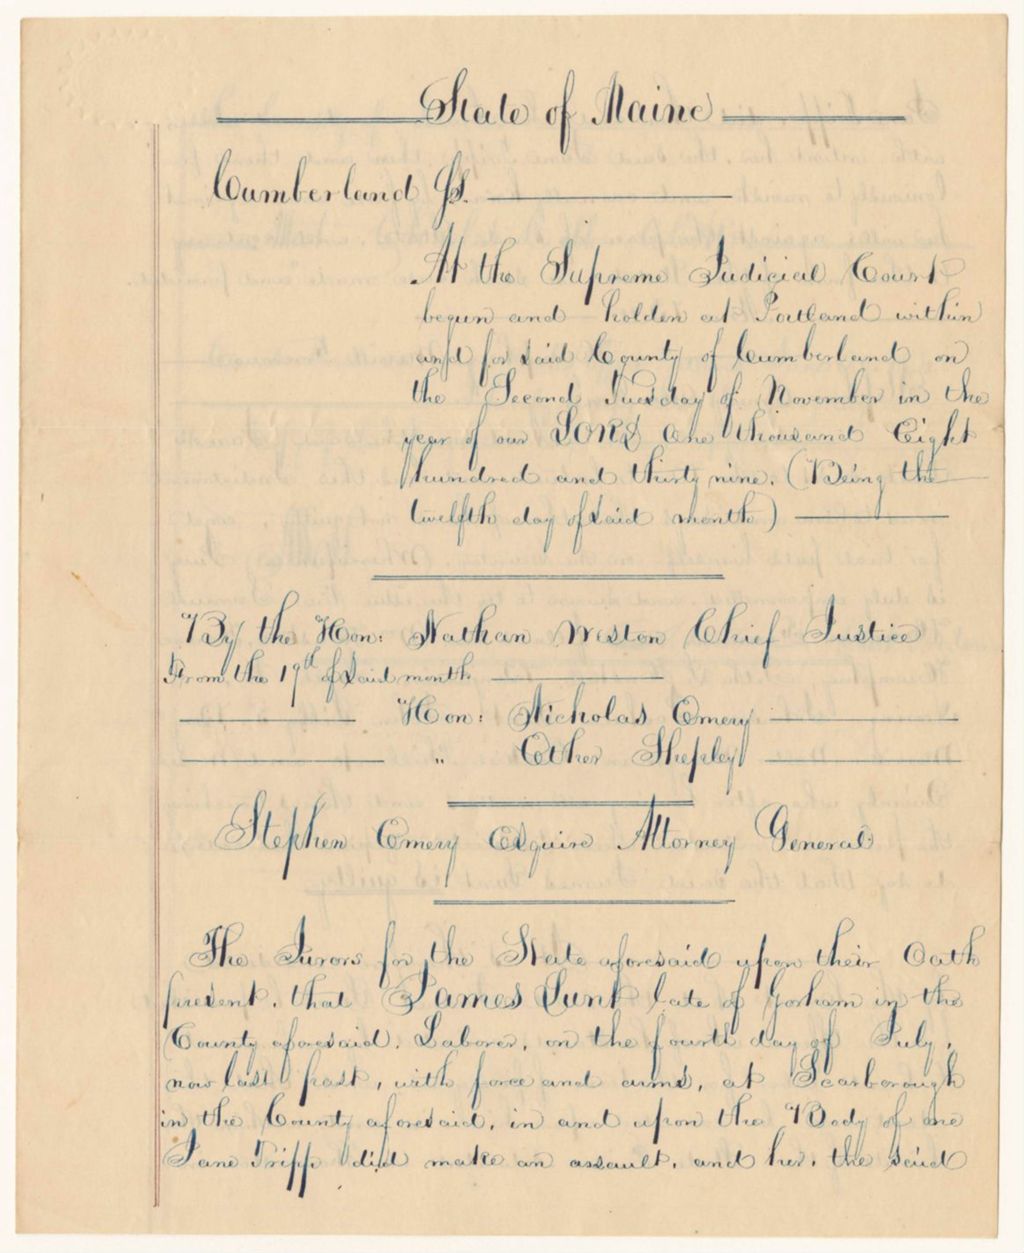 State of Maine
Cumberland Ss.
At the Supreme Judicial Court
begun and holden at Portland within
and for said County of Cumberland on
the Second Tuesday of November in the
year of our LORD One thousand Eight
hundred and thirty nine. (Being the
twelfth day of said month)
By the Hon: Nathan Weston Chief Justice
From the 19th of said month
Hon: Nicholas Emery
" Ether Shepley
Stephen Emery Esquire Attorney General
The Jurors for the State aforesaid upon their Oath
present, that James Lunt late of Gorham in the
County aforesaid, Laborer, on the fourth day of July,
now last past, with force and arms, at Scarborough
in the County aforesaid, in and upon the Body of one
Jane Tripp did make an assault, and her, the said